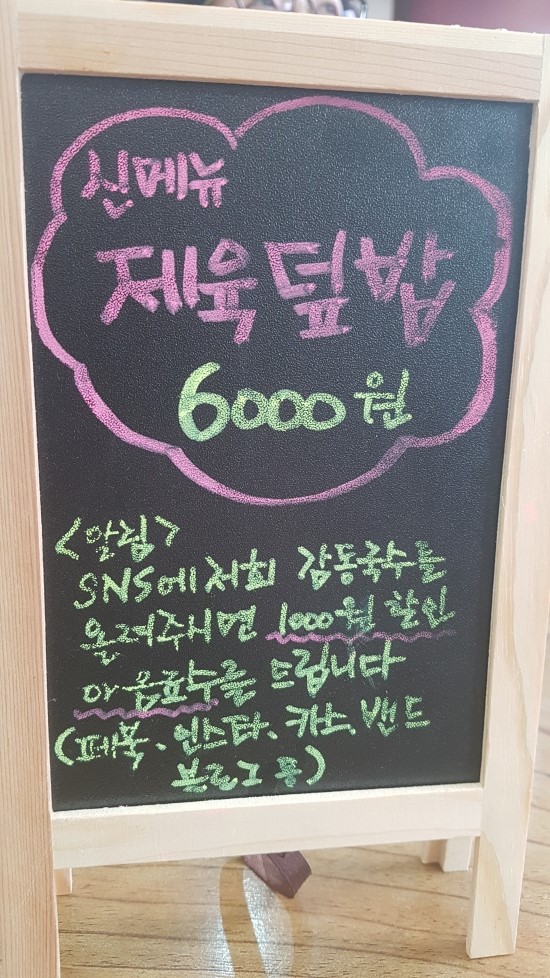 신메뉴
제육덮밥
6000원
<알림>
SNS에 저희 감동국수를
올려주시면 1000원 할인
or 음료수를 드립니다
(페북、인스타、카스、밴드
블로그 등)